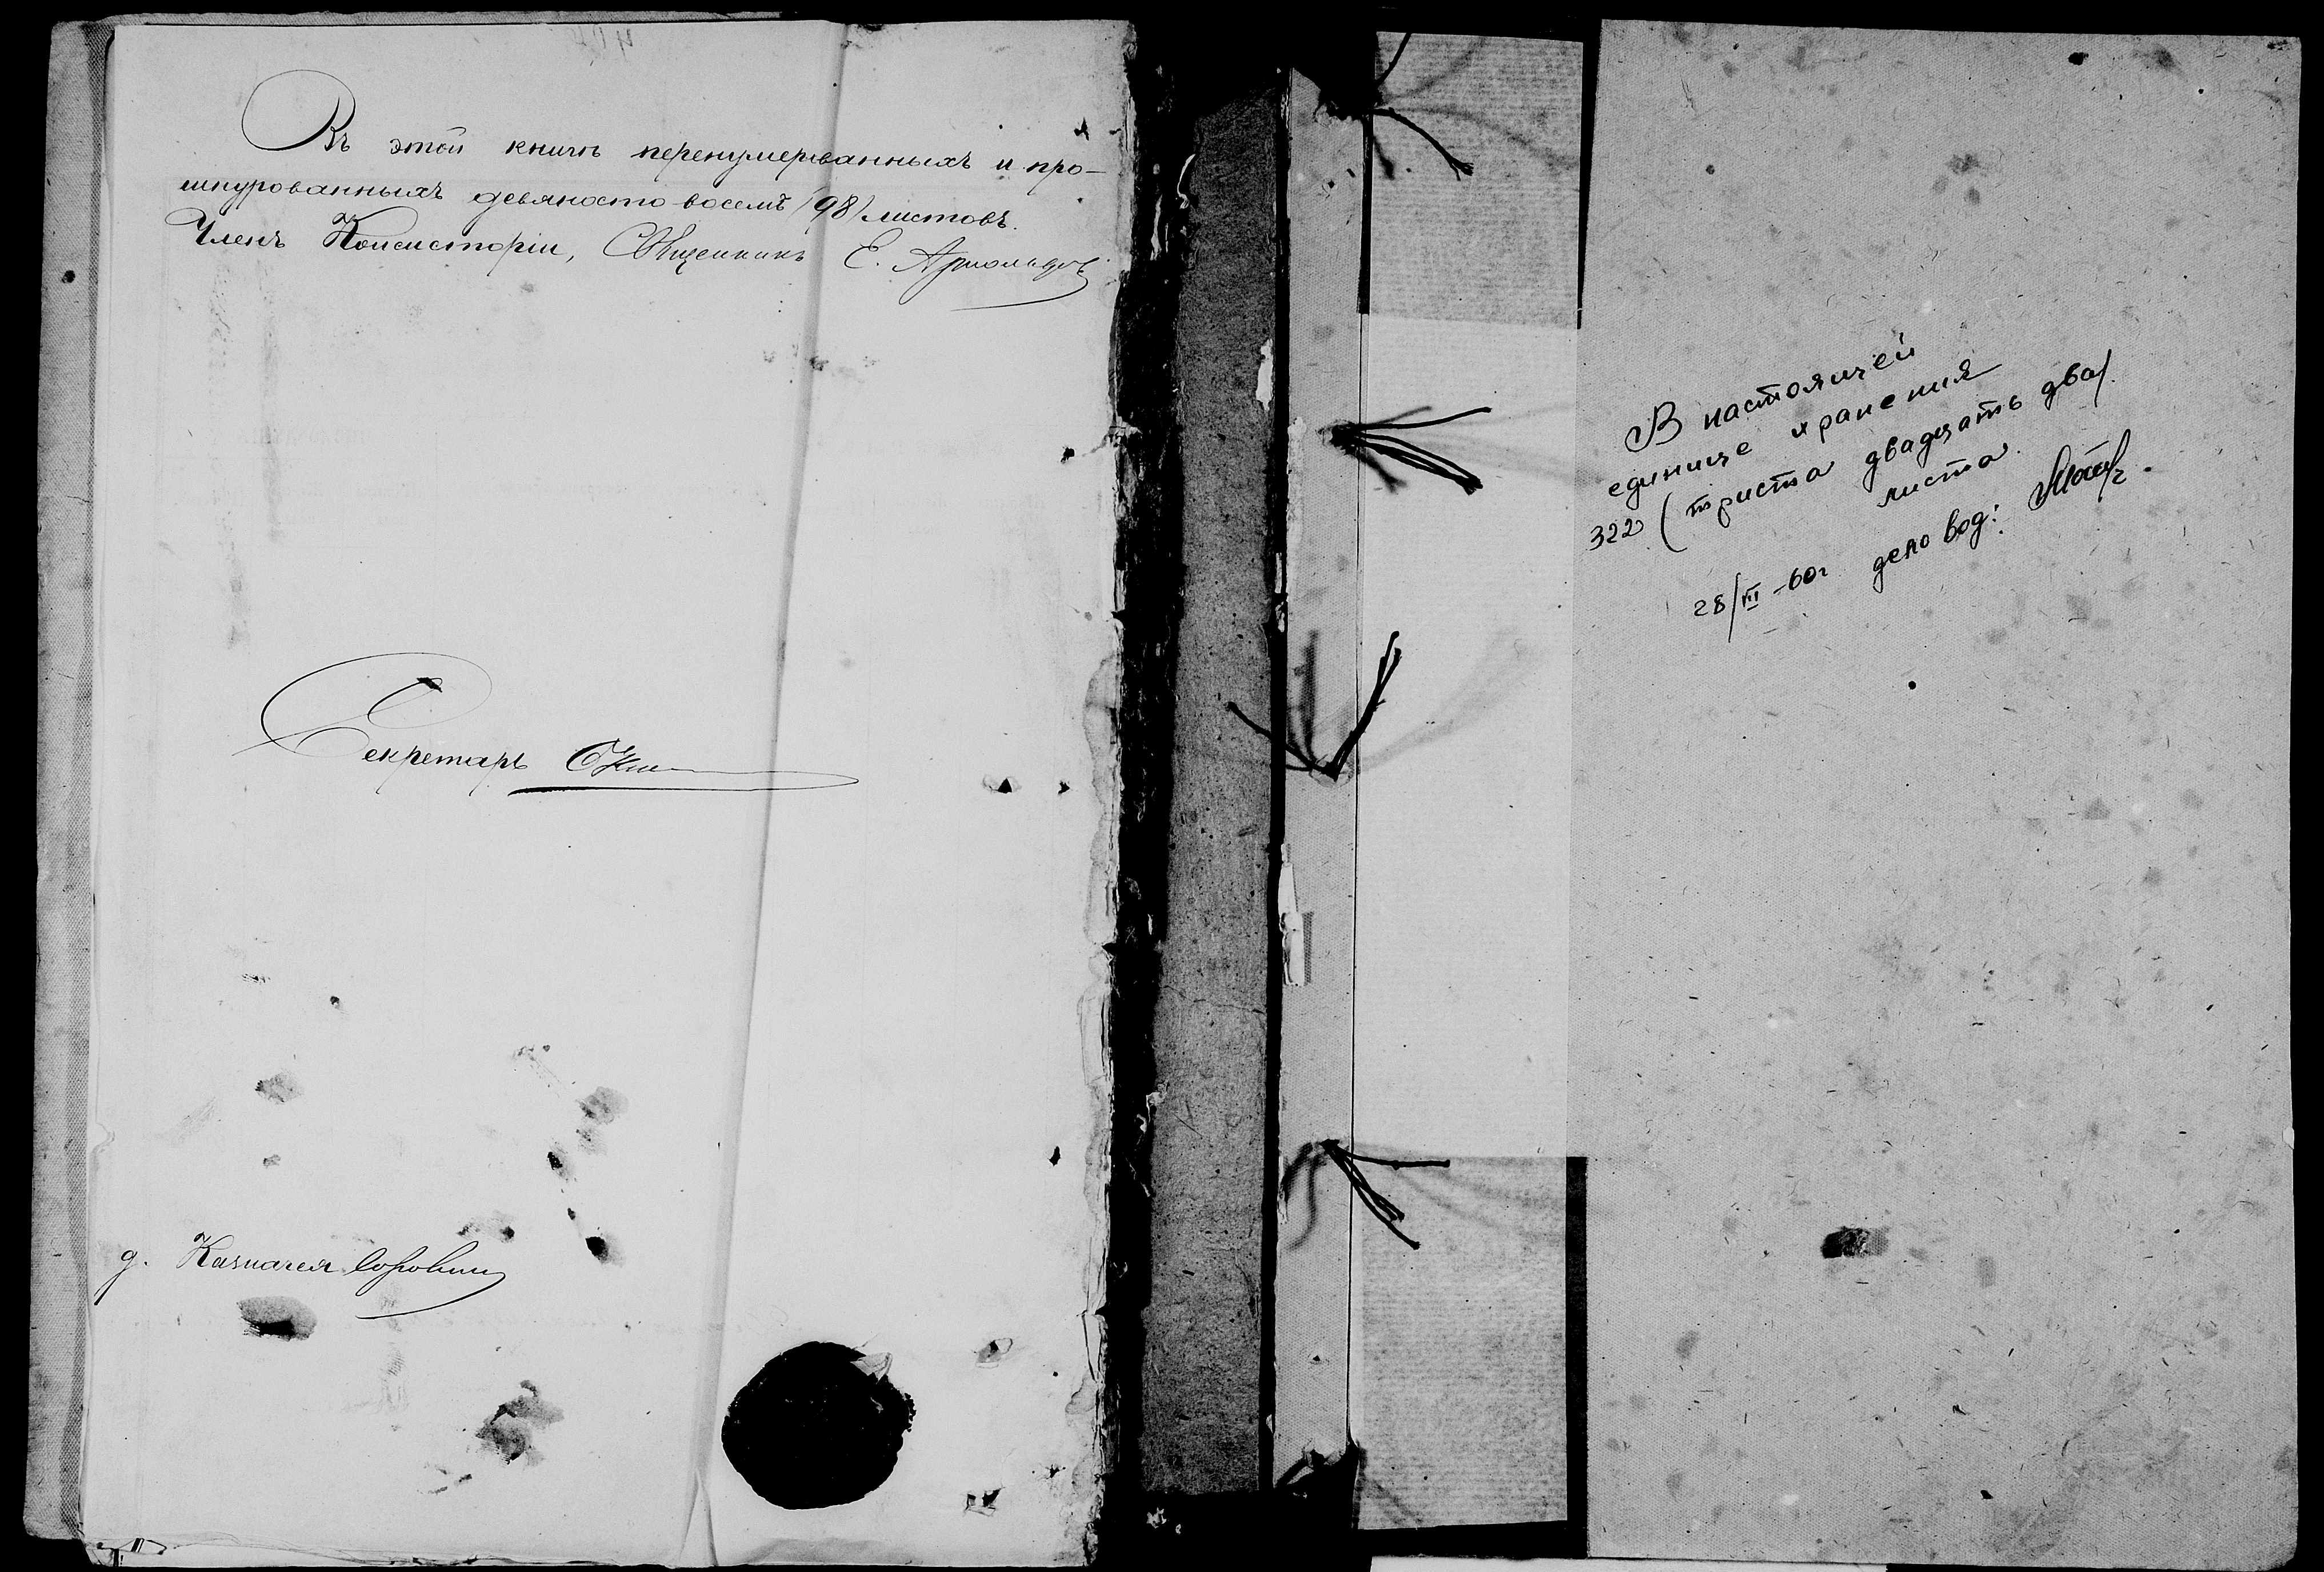 Въ этой книгѣ перенумерованныхъ и про-
шнурованныхъ девяносто восемь /98/ листовъ.
Членъ Консисторіи, Священникъ Е. Арнольдовъ
Секретарь
д. Казначея
В настоящей
единице хранения
322 (триста двадцать два)
листа.
28/III-60г деловод: